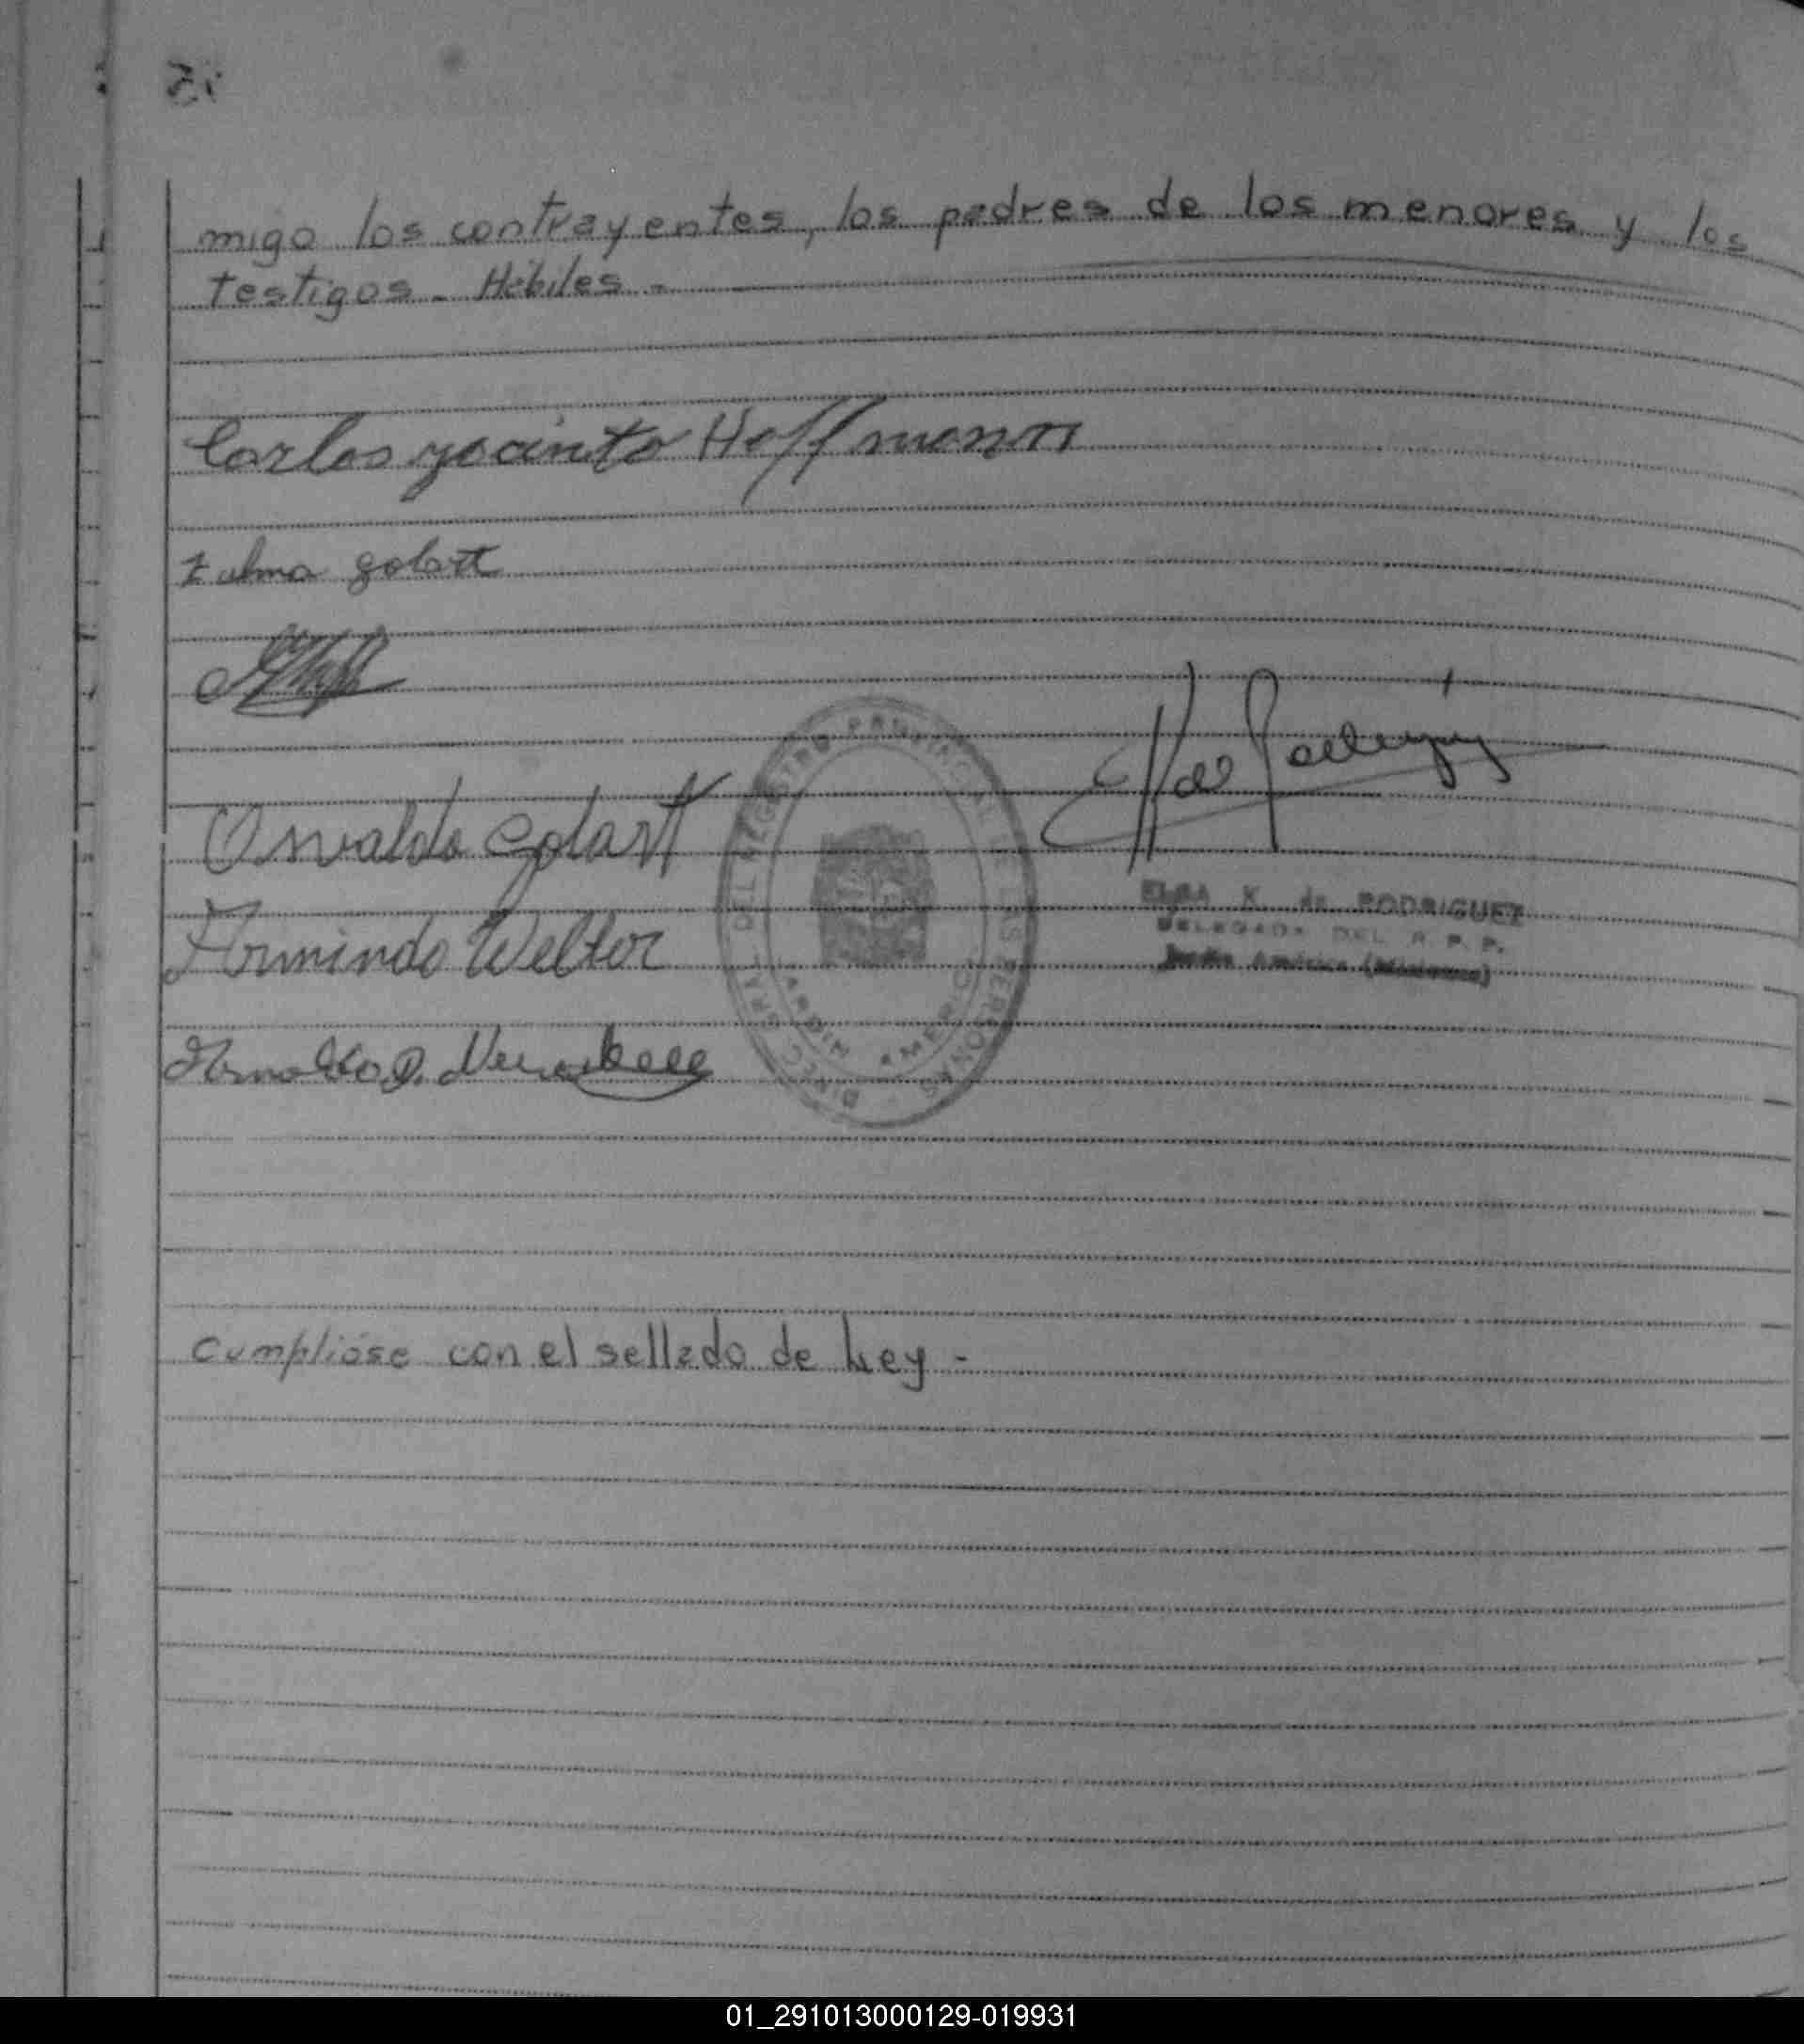 migo los contrayentes, los padres de los menores y los
testigos. Hábiles.-
Carlos yacinto Hoffmann
zulma golart
Osvaldo Golart
Armindo Welter
Arnoldo
DIREC. GRAL. DEL REGISTRO PROVINCIAL DE LAS PERSONAS
JARDIN AMERICA
ELBA K. de RODRIGUEZ
DELEGADA DEL R. P. P.
Jardín América (Misiones)
Cumplióse con el sellado de Ley -
01_291013000129-019931